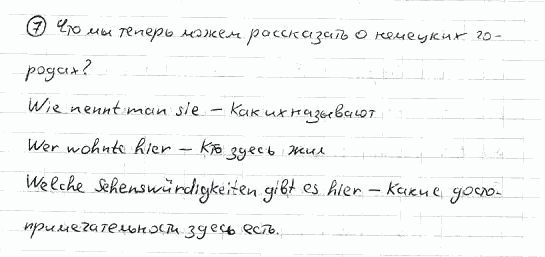 ⑦ Что мы теперь можем рассказать о немецких го-
родах?
Wie nennt man sie – Как их называют
Wer wohnte hier – Кто здесь жил
Welche Sehenswürdigkeiten gibt es hier – Какие досто-
примечательности здесь есть.